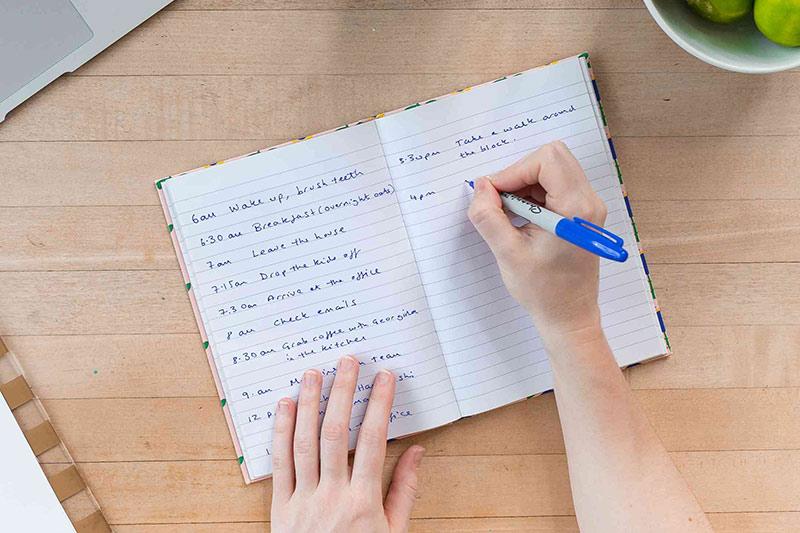 6am Wake up, brush teeth
6.30am Breakfast (overnight oats)
7am Leave the house
7.15am Drop the kids off
7.30am Arrive at the office
8am Check emails
8.30am Grab coffee with Georgina
in the kitchen
9.am team
12
office
3.30pm Take a walk around
the block.
4pm